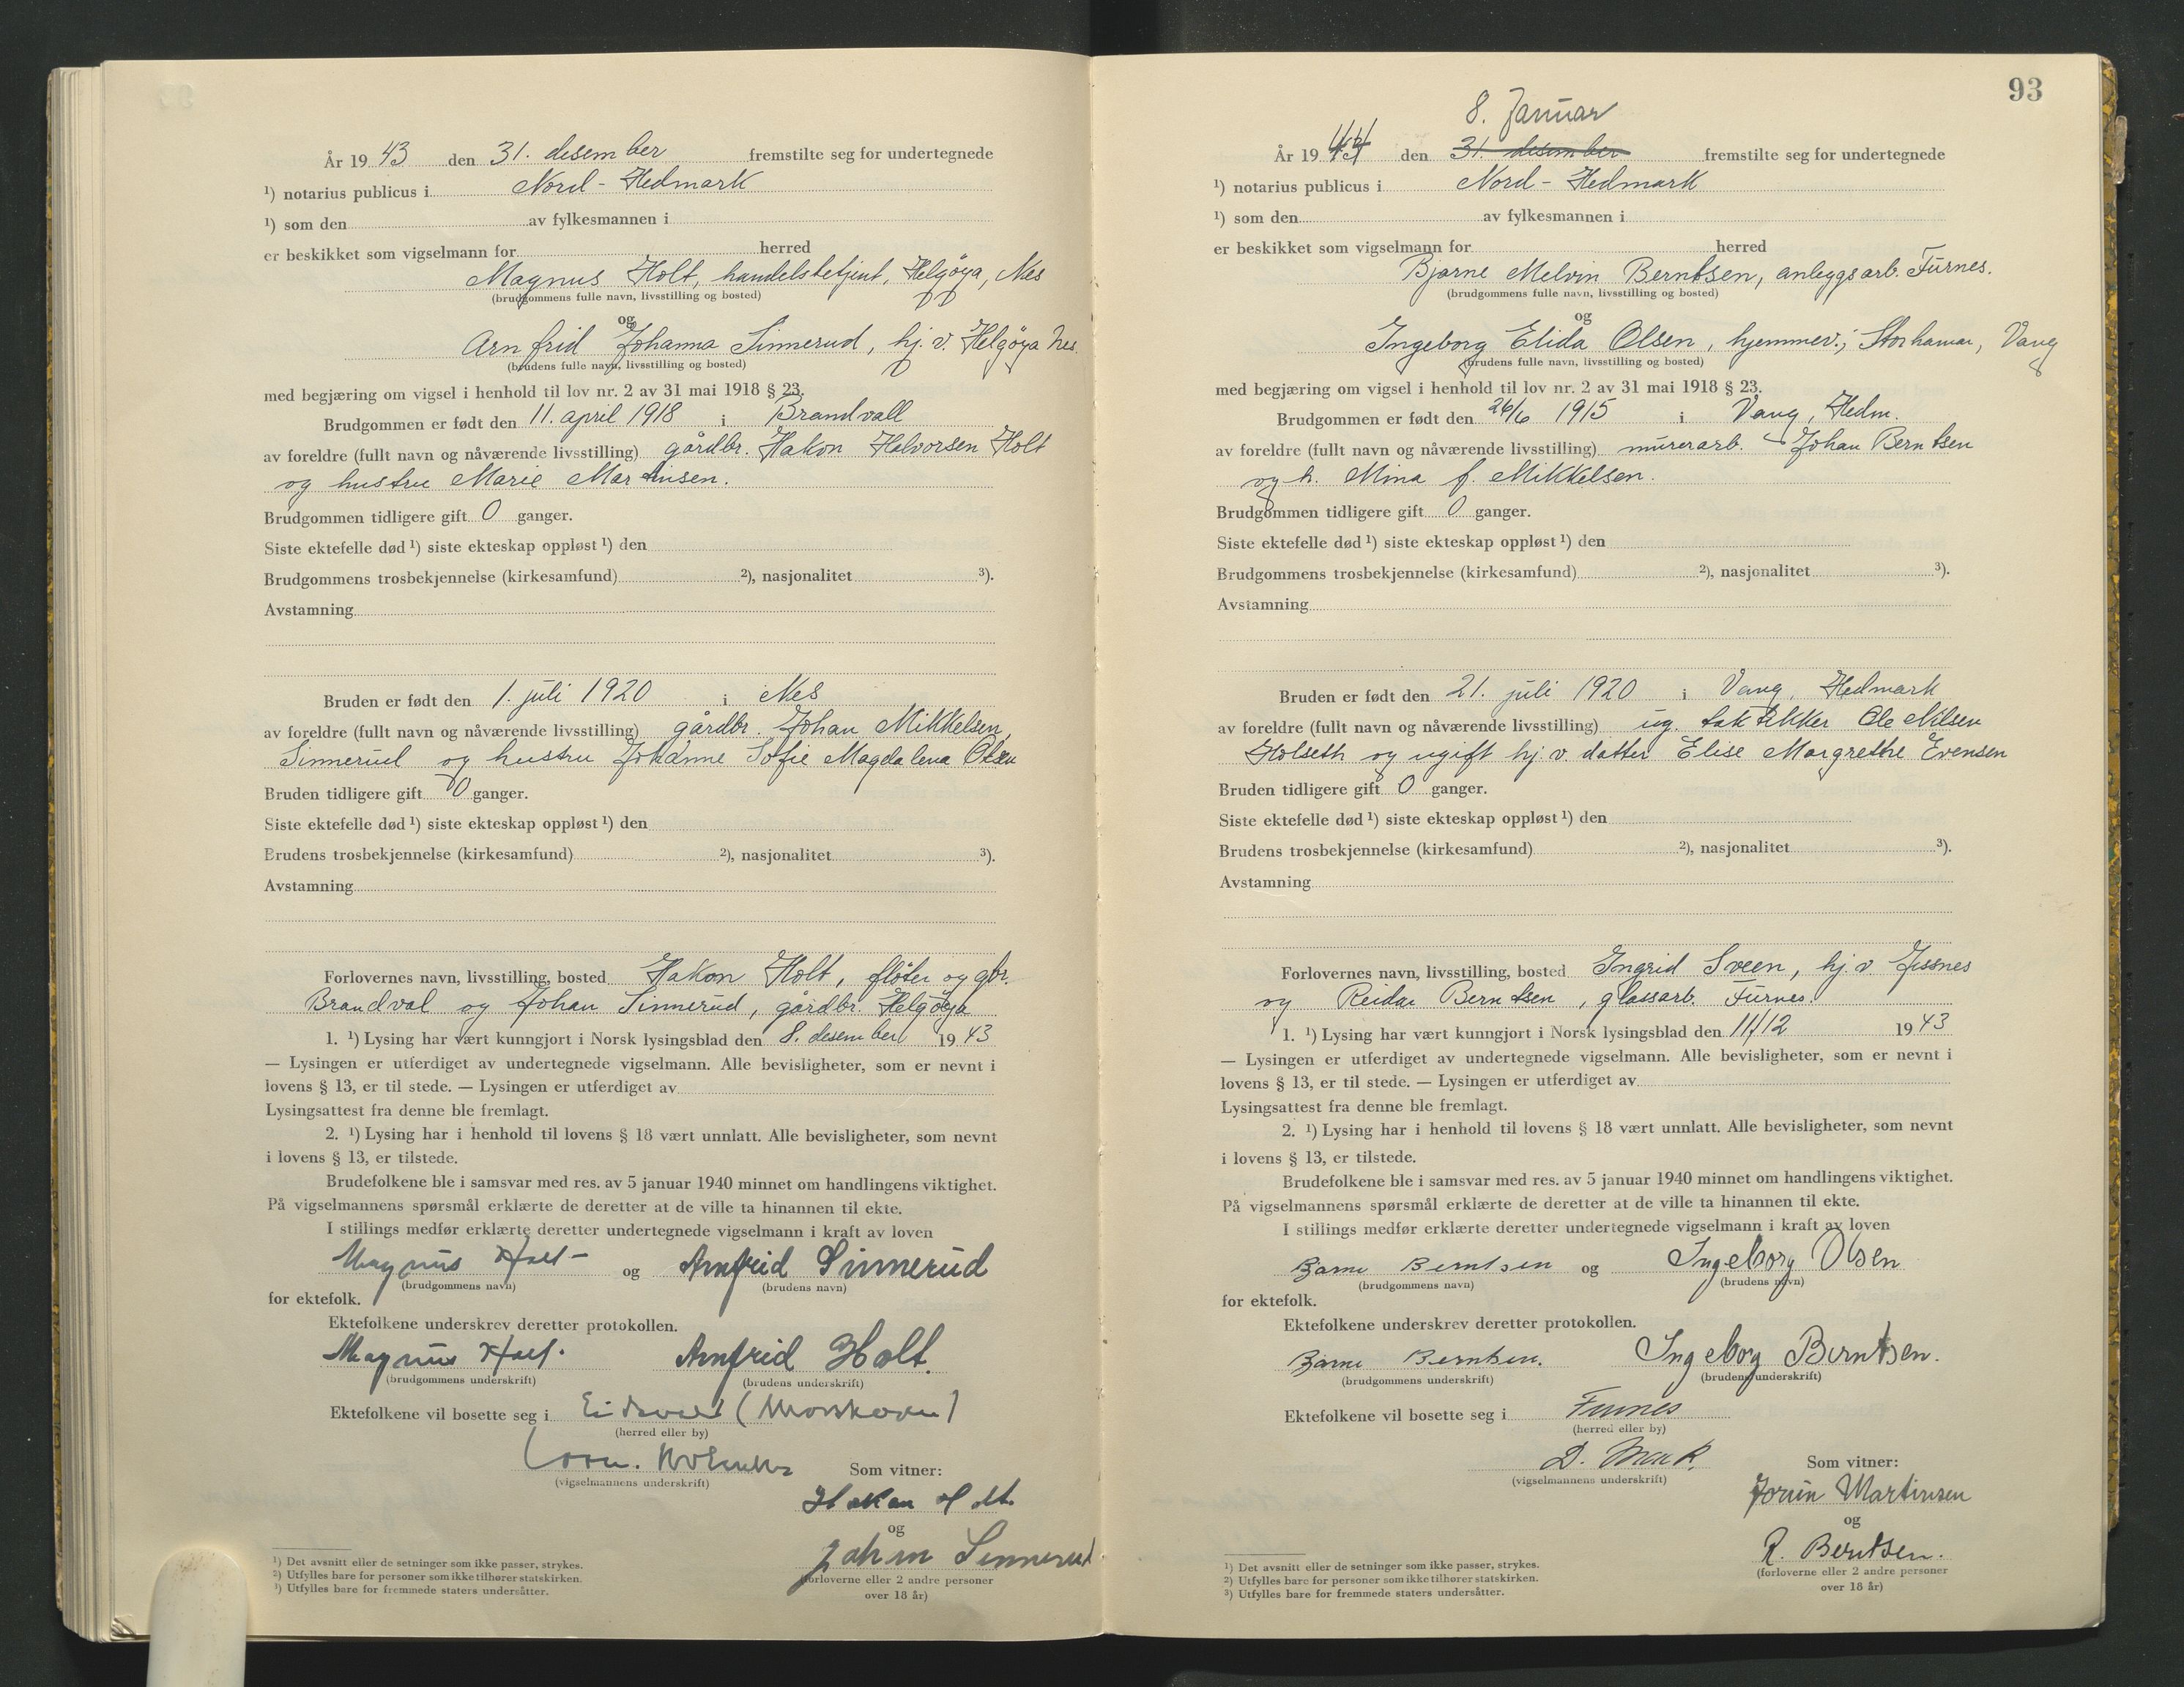 År 19 43 den 31. desember fremstilte seg for undertegnede
¹) notarius publicus i Nord-Hedmark
¹) som den av fylkesmannen i
er beskikket som vigselmann for herred
Magnus Holt, handelsbetjent, Helgøya, Nes
(brudgommens fulle navn, livsstilling og bosted)
og
Arnfrid Johanna Sinnerud, hj. v. Helgøya Nes
(brudens fulle navn, livsstilling og bosted)
med begjæring om vigsel i henhold til lov nr. 2 av 31 mai 1918 § 23.
Brudgommen er født den 11. april 1918 i Brandvall
av foreldre (fullt navn og nåværende livsstilling) gårdbr. Hakon Halvorsen Holt
og hustru Marie Martinsen.
Brudgommen tidligere gift 0 ganger.
Siste ektefelle død ¹) siste ekteskap oppløst ¹) den
Brudgommens trosbekjennelse (kirkesamfund) ²), nasjonalitet ³).
Avstamning
Bruden er født den 1. juli 1920 i Nes
av foreldre (fullt navn og nåværende livsstilling) gårdbr. Johan Mikkelsen
Sinnerud og hustru Johanne Sofie Magdalena Olsen
Bruden tidligere gift 0 ganger.
Siste ektefelle død ¹) siste ekteskap oppløst ¹) den
Brudens trosbekjennelse (kirkesamfund) ²), nasjonalitet ³).
Avstamning
Forlovernes navn, livsstilling, bosted Hakon Holt, fløter og gbr.
Brandval og Johan Sinnerud, gårdbr. Helgøya
1. ¹) Lysing har vært kunngjort i Norsk lysingsblad den 8. desember 19 43
— Lysingen er utferdiget av undertegnede vigselmann. Alle bevisligheter, som er nevnt i
lovens § 13, er til stede. — Lysingen er utferdiget av
Lysingsattest fra denne ble fremlagt.
2. ¹) Lysing har i henhold til lovens § 18 vært unnlatt. Alle bevisligheter, som nevnt
i lovens § 13, er tilstede.
Brudefolkene ble i samsvar med res. av 5 januar 1940 minnet om handlingens viktighet.
På vigselmannens spørsmål erklærte de deretter at de ville ta hinannen til ekte.
I stillings medfør erklærte deretter undertegnede vigselmann i kraft av loven
Magnus Holt og Arnfrid Sinnerud
(brudgommens navn) (brudens navn)
for ektefolk.
Ektefolkene underskrev deretter protokollen.
Magnus Holt. Arnfrid Holt.
(brudgommens underskrift) (brudens underskrift)
Ektefolkene vil bosette seg i Eidsvoll
(herred eller by)
(vigselmannens underskrift) Som vitner:
Hakon Holt
og
Johan Sinnerud
(forloverne eller 2 andre personer
over 18 år)
¹) Det avsnitt eller de setninger som ikke passer, strykes.
²) Utfylles bare for personer som ikke tilhører statskirken.
³) Utfylles bare for fremmede staters undersåtter.
93
8. Januar
År 19 44 den 31. desember fremstilte seg for undertegnede
¹) notarius publicus i Nord-Hedmark
¹) som den av fylkesmannen i
er beskikket som vigselmann for herred
Bjarne Melvin Berntsen, anleggsarb. Furnes.
(brudgommens fulle navn, livsstilling og bosted)
og
Ingeborg Elida Olsen, hjemmev., Storhamar, Vang
(brudens fulle navn, livsstilling og bosted)
med begjæring om vigsel i henhold til lov nr. 2 av 31 mai 1918 § 23.
Brudgommen er født den 26/6 1915 i Vang, Hedm.
av foreldre (fullt navn og nåværende livsstilling) murerarb. Johan Berntsen
og h. Mina f. Mikkelsen.
Brudgommen tidligere gift 0 ganger.
Siste ektefelle død ¹) siste ekteskap oppløst ¹) den
Brudgommens trosbekjennelse (kirkesamfund) ²), nasjonalitet ³).
Avstamning
Bruden er født den 21. juli 1920 i Vang, Hedmark
av foreldre (fullt navn og nåværende livsstilling) ug. taktekker Ole Nilsen
Holseth og ugift hj. v. datter Elise Margrethe Evensen
Bruden tidligere gift 0 ganger.
Siste ektefelle død ¹) siste ekteskap oppløst ¹) den
Brudens trosbekjennelse (kirkesamfund) ²), nasjonalitet ³).
Avstamning
Forlovernes navn, livsstilling, bosted Ingrid Sveen, hj. v. Jessnes
og Reidar Berntsen, glassarb. Furnes.
1. ¹) Lysing har vært kunngjort i Norsk lysingsblad den 11/12 19 43
— Lysingen er utferdiget av undertegnede vigselmann. Alle bevisligheter, som er nevnt i
lovens § 13, er til stede. — Lysingen er utferdiget av
Lysingsattest fra denne ble fremlagt.
2. ¹) Lysing har i henhold til lovens § 18 vært unnlatt. Alle bevisligheter, som nevnt
i lovens § 13, er tilstede.
Brudefolkene ble i samsvar med res. av 5 januar 1940 minnet om handlingens viktighet.
På vigselmannens spørsmål erklærte de deretter at de ville ta hinannen til ekte.
I stillings medfør erklærte deretter undertegnede vigselmann i kraft av loven
Bjarne Berntsen og Ingeborg Olsen
(brudgommens navn) (brudens navn)
for ektefolk.
Ektefolkene underskrev deretter protokollen.
Bjarne Berntsen. Ingeborg Berntsen.
(brudgommens underskrift) (brudens underskrift)
Ektefolkene vil bosette seg i Furnes
(herred eller by)
(vigselmannens underskrift) Som vitner:
Jorun Martinsen
og
R. Berntsen.
(forloverne eller 2 andre personer
over 18 år)
¹) Det avsnitt eller de setninger som ikke passer, strykes.
²) Utfylles bare for personer som ikke tilhører statskirken.
³) Utfylles bare for fremmede staters undersåtter.